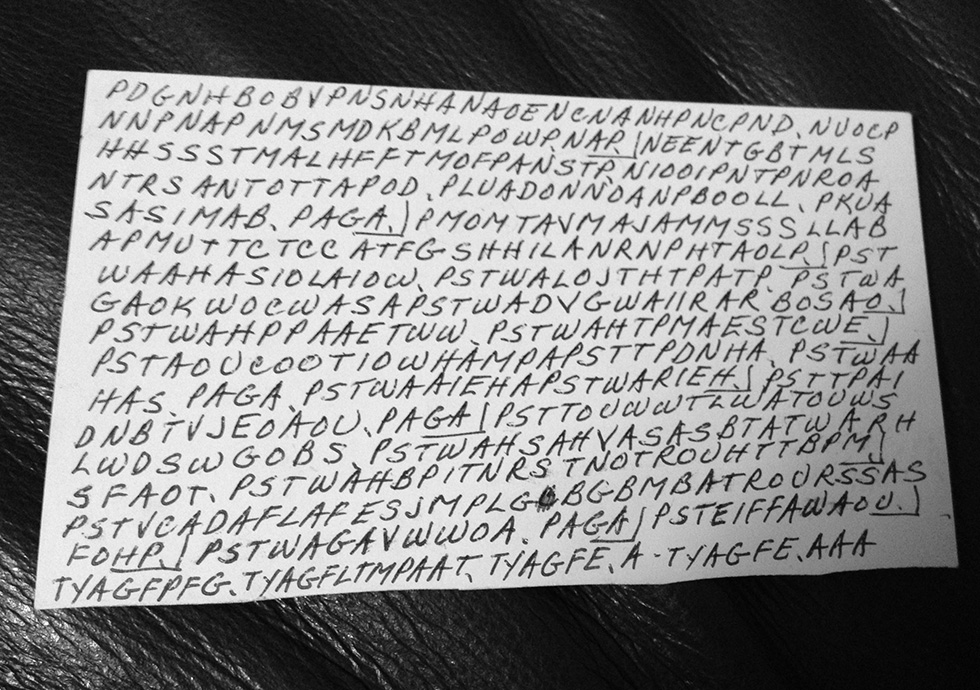 PDGNHBOBVPNSNHANAOENCNANHPNCPND. NUOCP
NNPNAPNMSMDKBMLPOWP.NAP.|NEENTGBTMLS
HHSSSTMALHFFTMOFPANSTP. NIOOIPNTPNROA
NTRSANTOTTAPOD. PLUADONNOANPBOOLL. PKUA
SASIMAB. PAGA.|PMOMTAVMAJAMMSSSLLAB
APMUTTCTCCATFGSHHILANRNPHTAOLP.|PST
WAAHASIOLAIOW. PSTWALOJTHTPATP. PSTWA
GAOKWOCWASAPSTWADVGWAIIRAR. BOSAO.|
PSTWAHPPAAETWW. PSTWAHTPMAESTCWE.|
PSTAOUCOOTIOWHAMPAPSTTPDNHA. PSTWAA
HAS. PAGA. PSTWAAIEHAPSTWARIEH.|PSTTPAI
DNBTVJEOAOU. PAGA|PSTTOUWWTLWATOUWS
LWDSWGOBS. PSTWAHSAHVASASBTATWARH
SFAOT. PSTWAHBPITNRS TNOTROUHTTBPM.|
PSTVCADAFLAFESJMPLGOBGBMBATROURSSAS
FOHP.|PSTWAGAVWWOA. PAGA|PSTEIFFAWAOU.|
TYAGFPFG. TYAGFLTMPAAT. TYAGFE. A - TYAGFE. AAA